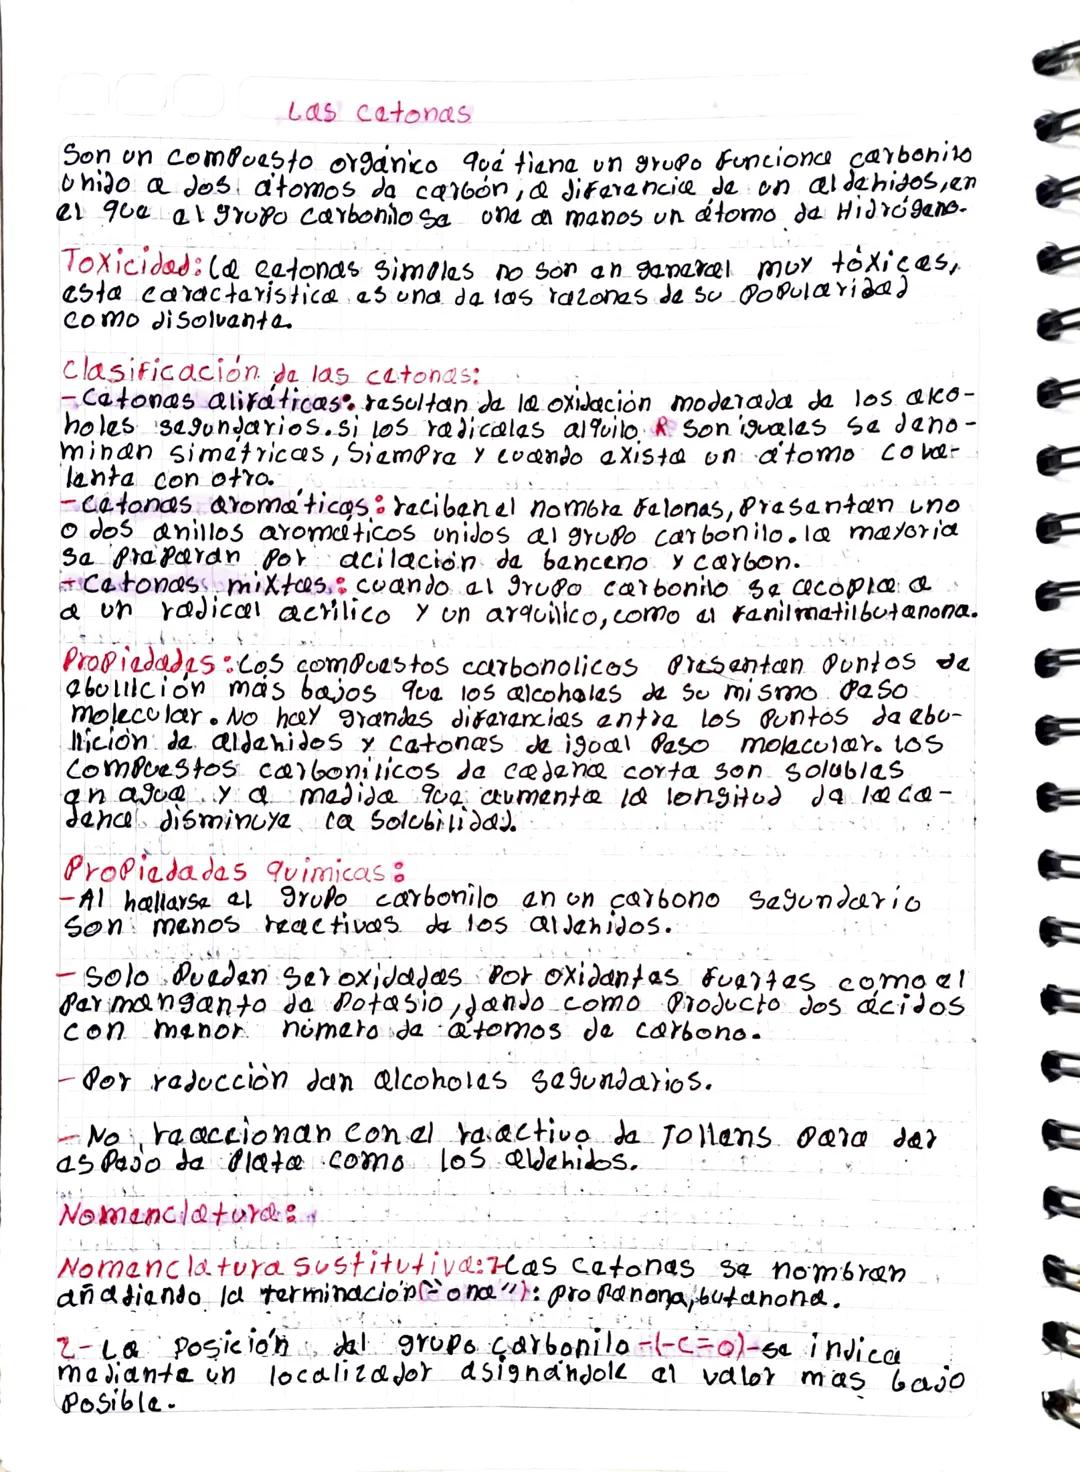 Las cetonas
Son un compuesto orgánico qué tiene un grupo funcione carbonilo
unido a dos átomos de carbón, a diferencia de un aldehidos, en
el que el grupo carbonilo se une al menos un átomo de Hidrógeno.
Toxicidad: La cetonas simples no son en general muy tóxicas,
esta caracteristica es una de las razones de su Popularidad
como disolvente.
Clasificación de las cetonas:
- Cetonas alifáticas: resultan de la oxidación moderada de los alco-
holes segundarios. si los radicales alquilo R son iguales se deno-
minan simétricas, Siempre y cuando exista un átomo cova-
lente con otro.
- Cetonas aromáticas: reciben el nombre felonas, Presentan uno
o dos anillos aromáticos unidos al grupo carbonilo. la mayoria
se preparan por acilación de benceno y carbon.
- Cetonas mixtas: cuando el grupo carbonilo se acopla a
a un radical acrílico y un arquilico, como el fenilmetilbutanona.
Propiedades: Los compuestos carbonolicos Presentan Puntos de
ebullición más bajos que los alcoholes de su mismo Peso
molecular. No hay grandes diferencias entre los Puntos de ebu-
llición de aldehidos y cetonas de igual Peso molecular. los
compuestos carbonílicos de cadena corta son solubles
en agua y a medida que aumenta la longitud de la ca-
dena disminuye la solubilidad.
Propiedades quimicas:
- Al hallarse el grupo carbonilo en un carbono segundario
son menos reactivas de los aldehidos.
- Solo Pueden ser oxidadas Por oxidantes fuertes como el
Permanganto de Potasio, dando como Producto dos ácidos
con menor número de átomos de carbono.
- Por reducción dan alcoholes segundarios.
- No reaccionan con el reactivo de Tollens Para dar
espejo de Plata como los aldehidos.
Nomenclatura:
Nomenclatura Sustitutiva: 1-Las cetonas se nombran
añadiendo la terminación ("ona"): propanona, butanona.
2-La posición del grupo carbonilo -(-C=O)- se indica
mediante un localizador asignándole el valor mas bajo
Posible.